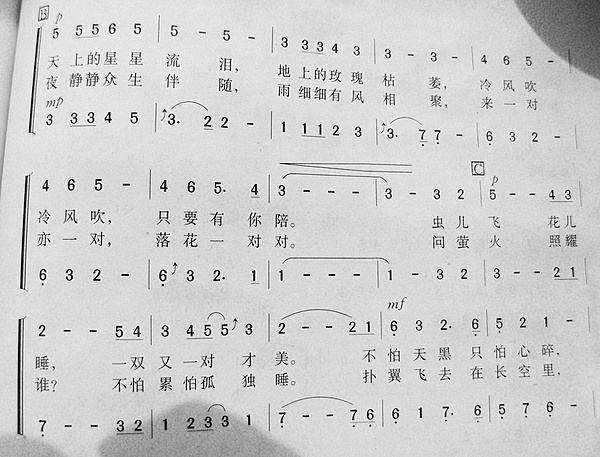 B p
5 5565 5 | 5 - 5 - | 3 3343 3 - 3 - | 4 6 5 -
天上的星星 流 泪, 地上的玫瑰 枯 萎, 冷风吹
夜静静众生 伴 随, 雨细细有风 相 聚, 来一对
mp
3 3345 | 3. 22 - | 1 1123 | 3. 77 - | 6 3 2 -
C p
4 6 5 - | 4 6 5. 4 | 3 - - - | 3 - 3 2 | 5 - - 43
冷风吹, 只要有你陪。 虫儿飞 花儿
亦一对, 落花一对对。 问萤火 照耀
6 3 2 - | 6 3 2. 1 | 1 - - - | 1 - 3 2 | 3 - - 21
mf
2 - - 54 | 3 455 3 | 2 - - 21 | 6 3 2. 6 | 5 2 1 -
睡, 一双又一对才美。 不怕天黑只怕心碎,
谁? 不怕累怕孤独睡。 扑翼飞去在长空里,
7 - - 32 | 1 233 1 | 7 - - 76 | 6 1 7. 6 | 5 7 6 -